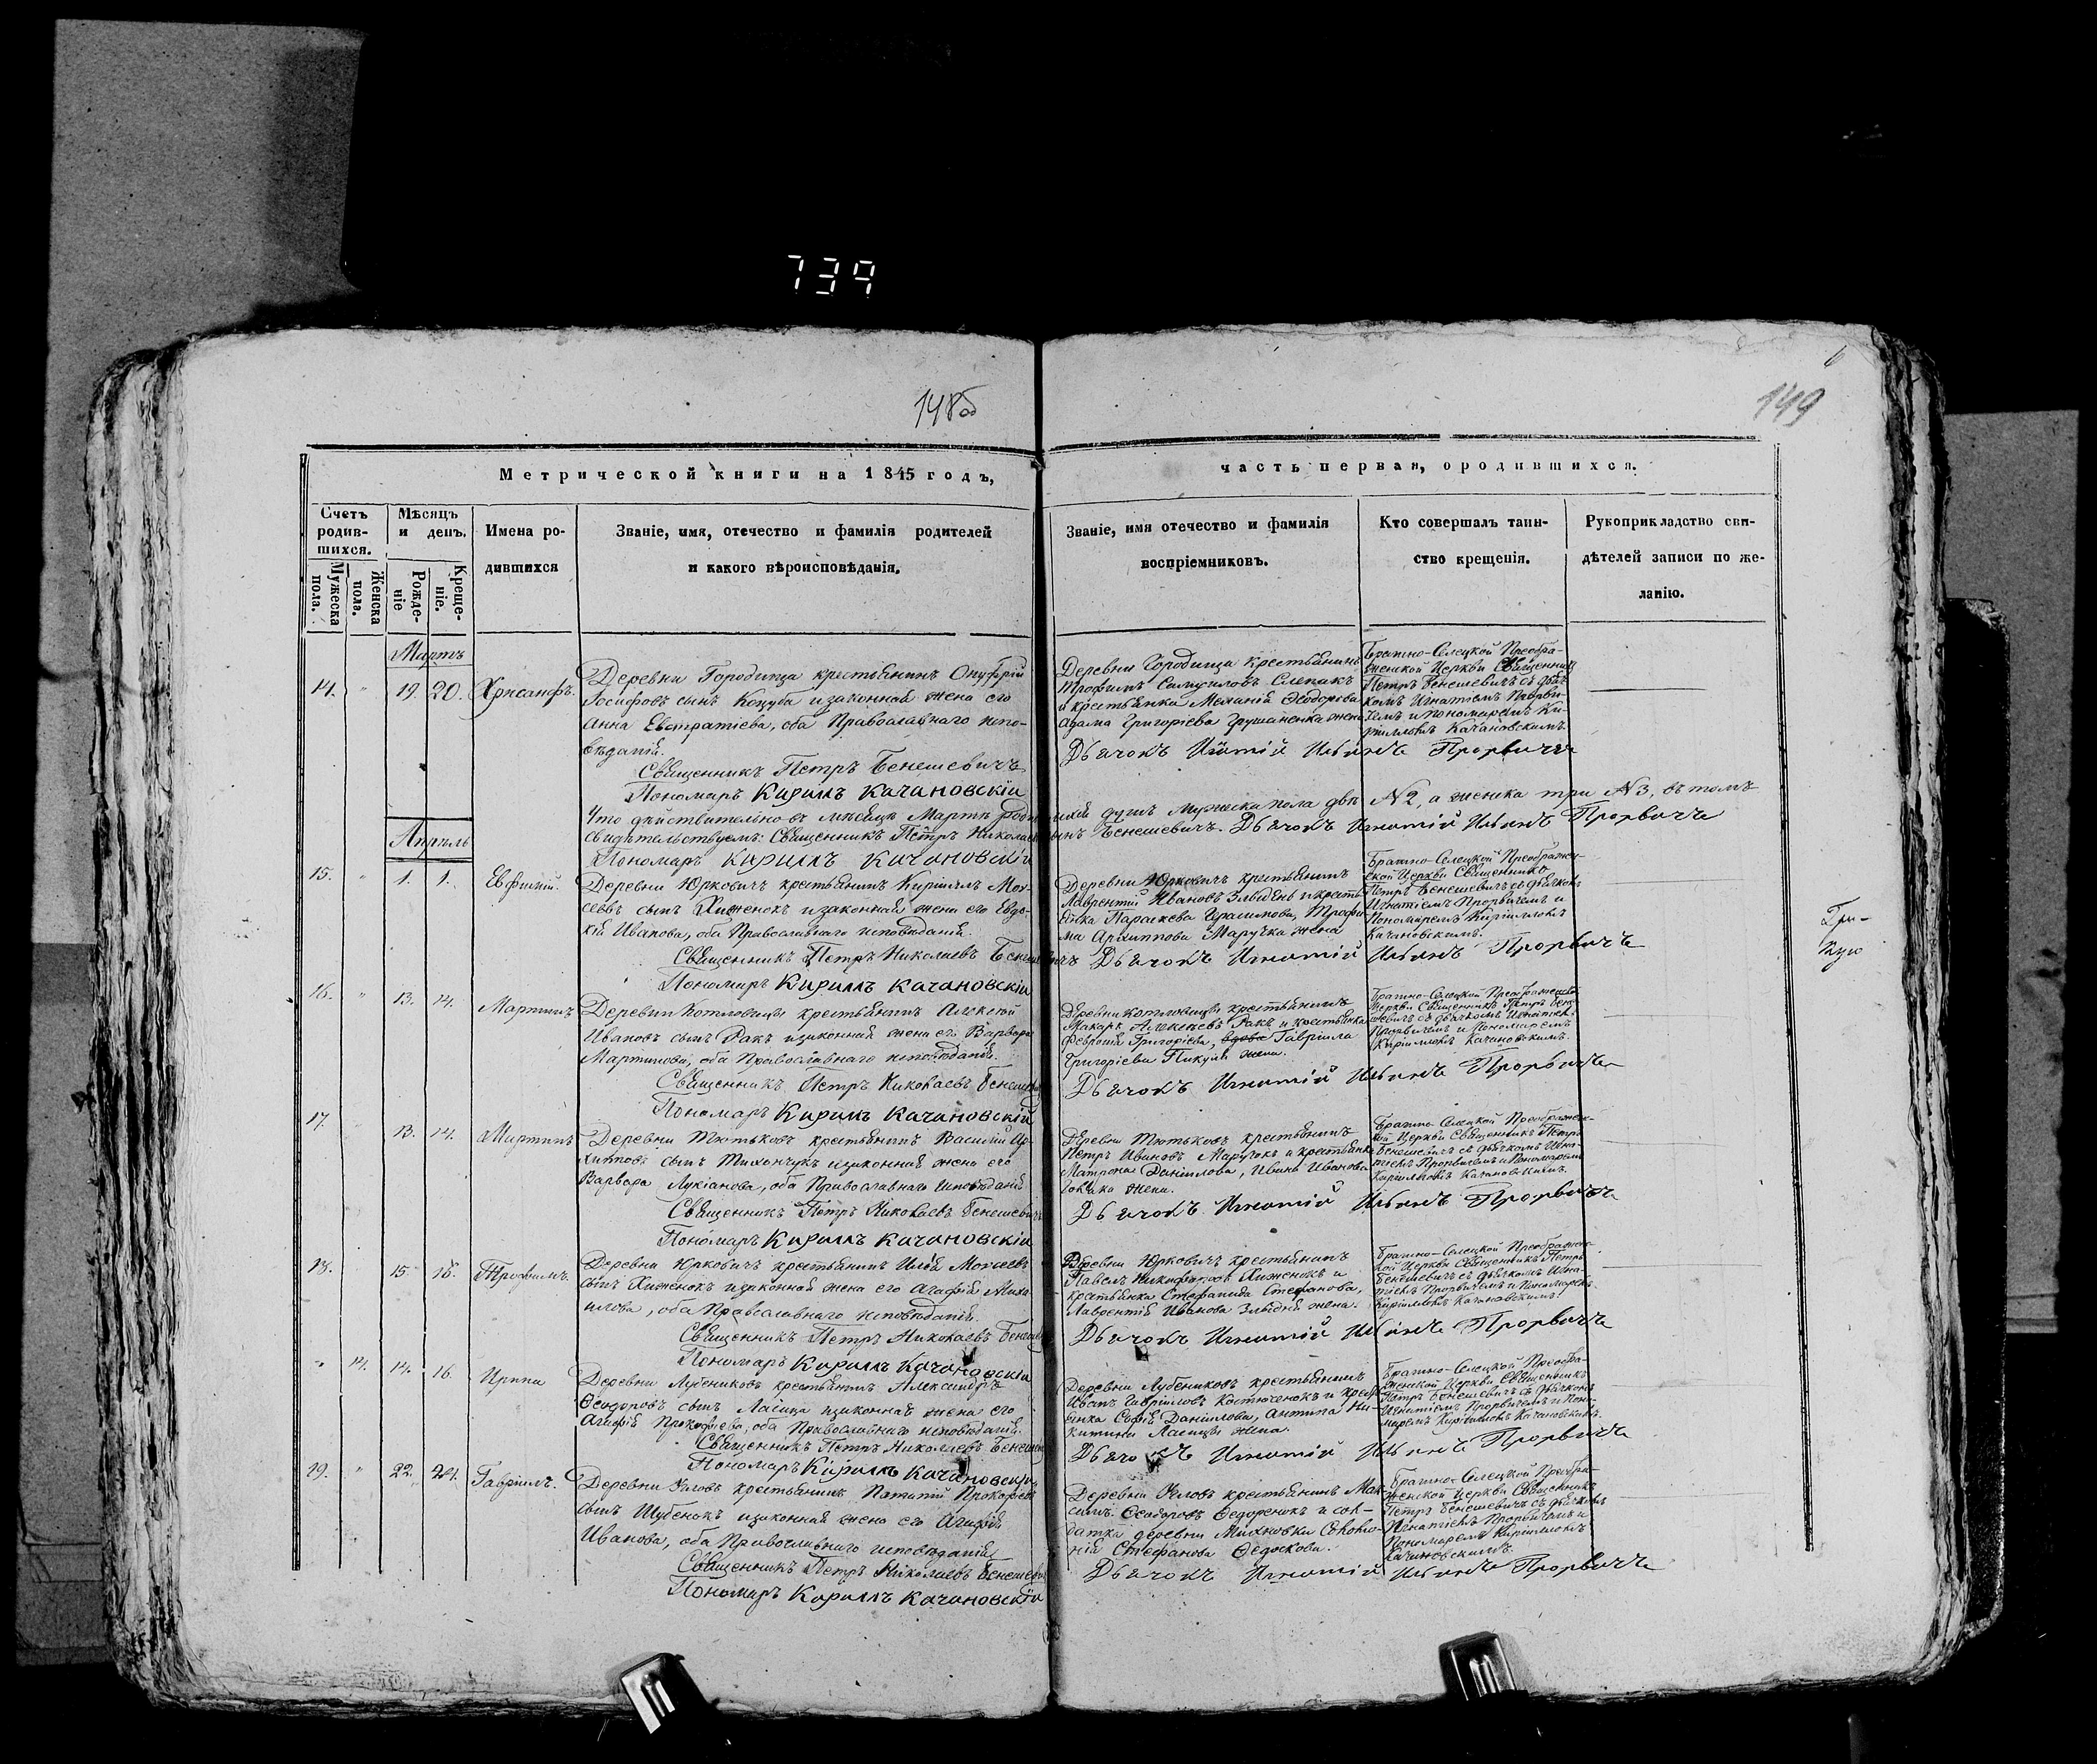 739
148об
6
149
Метрической книги на 1845 годъ,
часть первая, ородившихся.
Счетъ родив-шихся.
Мужеска пола.
Женска пола.
Мѣсяцъ и день.
Рожде-ніе
Креще-ніе.
Имена ро-
дившихся
Званіе, имя, отечество и фамилія родителей
и какого вѣроисповѣданія.
Званіе, имя отечество и фамилія
воспріемниковъ.
Кто совершалъ таин-
ство крещенія.
Рукоприкладство сви-
дѣтелей записи по же-
ланію.
Мартъ
14. " 19. 20. Хрисанфъ.
Деревни Городища крестьянинъ Онуфрій
Іосифовъ сынъ Коцуба изаконная жена его
Анна Евстратіева, оба Православнаго испо-
вѣданія.
Священникъ Петръ Бенешевичъ
Пономаръ Кирилъ Качановскій
Деревни Городища крестьянинъ
Трофимъ Самуиловъ Слепакъ
и крестьянка Меланія Ѳеодорова
Адама Григоріева Грушаненка жена
Дьячокъ Игнатій Ильинъ Прорвичъ
Братно-Селецкой Преобра-
женской Церкви Священникъ
Петръ Бенешевичъ съ дьяч-
комъ Игнатіемъ Прорви-
чемъ и пономаремъ Ки-
рилломъ Качановскимъ.
Что дѣйствительно въ мѣсяцѣ Мартѣ душъ Мужеска пола двѣ №2, а женска три №3, въ томъ
свидѣтельствуемъ: Священникъ Петръ Николаевъ Бенешевичъ. Дьячокъ Игнатій Ильинъ Прорвичъ
Пономаръ Кирилъ Качановскій
Апрѣль
15. " 1. 1. Евфимій.
Деревни Юрковичъ крестьянинъ Кириллъ Мои-
сеевъ сынъ Хиженокъ изаконная жена его Евдо-
кія Иванова, оба Православнаго исповѣданія.
Священникъ Петръ Николаевъ Бенешевичъ
Пономаръ Кирилъ Качановскій
Деревни Юрковичъ крестьянинъ
Лаврентій Ивановъ и кресть-
янка Параскева Герасимова, Трофи-
ма Архиппова Маручка жена
Дьячокъ Игнатій Ильинъ Прорвичъ
Братно-Селецкой Преображен-
ской Церкви Священникъ
Петръ Бенешевичъ съ дьячкомъ
Игнатіемъ Прорвичемъ и
Пономаремъ Кирилломъ
Качановскимъ.
16. " 13. 14. Мартинъ
Деревни Котловицы крестьянинъ Алексій
Ивановъ сынъ Ракъ изаконная жена его Варвара
Мартинова, оба Православнаго исповѣданія.
Священникъ Петръ Николаевъ Бенешевичъ
Пономаръ Кирилъ Качановскій
Деревни Котловицы крестьянинъ
Макаръ Алексѣевъ Ракъ и крестьянка
Февронія Григоріева, вдова Гавріила
Григоріева Пикуля жена.
Дьячокъ Игнатій Ильинъ Прорвичъ
Братно-Селецкой Преображенской
Церкви Священникъ Петръ Бене-
шевичъ съ дьячкомъ Игнатіемъ
Прорвичемъ и Пономаремъ
Кирилломъ Качановскимъ.
17. 13. 14. Мартинъ
Деревни Тютьковъ крестьянинъ Василій Ар-
хипповъ сынъ Тихончукъ изаконная жена его
Варвара Лукіанова, оба Православнаго исповѣданія
Священникъ Петръ Николаевъ Бенешевичъ
Пономаръ Кирилъ Качановскій
Деревни Тютьковъ крестьянинъ
Петръ Ивановъ Маручокъ и крестьянка
Матрона Даніилова, Ивана Иванова
жена.
Дьячокъ Игнатій Ильинъ Прорвичъ
Братно-Селецкой Преображен-
кой Церкви Священникъ Петръ
Бенешевичъ съ дьячкомъ Игна-
тіемъ Прорвичемъ и Пономаремъ
Кирилломъ Качановскимъ.
18. 15. 16. Трофимъ.
Деревни Юрковичъ крестьянинъ Илія Моисеевъ
сынъ Хиженокъ изаконная жена его Агафія Миха-
илова, оба Православнаго исповѣданія.
Священникъ Петръ Николаевъ Бенешевичъ
Пономаръ Кирилъ Качановскій
Деревни Юрковичъ крестьянинъ
Павелъ Никифоровъ Хиженокъ и
крестьянка Стефанида Стефанова,
Лаврентія Иванова жена.
Дьячокъ Игнатій Ильинъ Прорвичъ
Братно-Селецкой Преображен-
кой Церкви Священникъ Петръ
Бенешевичъ съ дьячкомъ Игна-
тіемъ Прорвичемъ и Пономаремъ
Кирилломъ Качановскимъ.
" 14. 14. 16. Ирина
Деревни Лубениковъ крестьянинъ Александръ
Ѳеодоровъ сынъ Ласица изаконная жена его
Агафія Прокофіева, оба Православнаго исповѣданія.
Священникъ Петръ Николаевъ Бенешевичъ
Пономаръ Кирилъ Качановскій
Деревни Лубениковъ крестьянинъ
Иванъ Гавріиловъ Костюченокъ и крест-
янка Софія Даніилова, Антипа Ни-
китина Ласицы жена.
Дьячокъ Игнатій Ильинъ Прорвичъ
Братно-Селецкой Преобра-
женской Церкви Священникъ
Петръ Бенешевичъ съ дьячкомъ
Игнатіемъ Прорвичемъ и Поно-
маремъ Кирилломъ Качановскимъ.
19. " 22. 24. Гавріилъ.
Деревни Угловъ крестьянинъ Ипатій Прокофіевъ
сынъ Шубенокъ изаконная жена его Агафія
Иванова, оба Православнаго исповѣданія
Священникъ Петръ Николаевъ Бенешевичъ
Пономаръ Кирилъ Качановскій
Деревни Угловъ крестьянинъ Мак-
симъ Ѳеодоровъ Ѳедоренокъ и сол-
датка деревни Михновки Соломо-
нія Стефанова Ѳедоскова.
Дьячокъ Игнатій Ильинъ Прорвичъ
Братно-Селецкой Преобра-
женской Церкви Священникъ
Петръ Бенешевичъ съ дьячкомъ
Игнатіемъ Прорвичемъ и
Пономаремъ Кирилломъ
Качановскимъ.